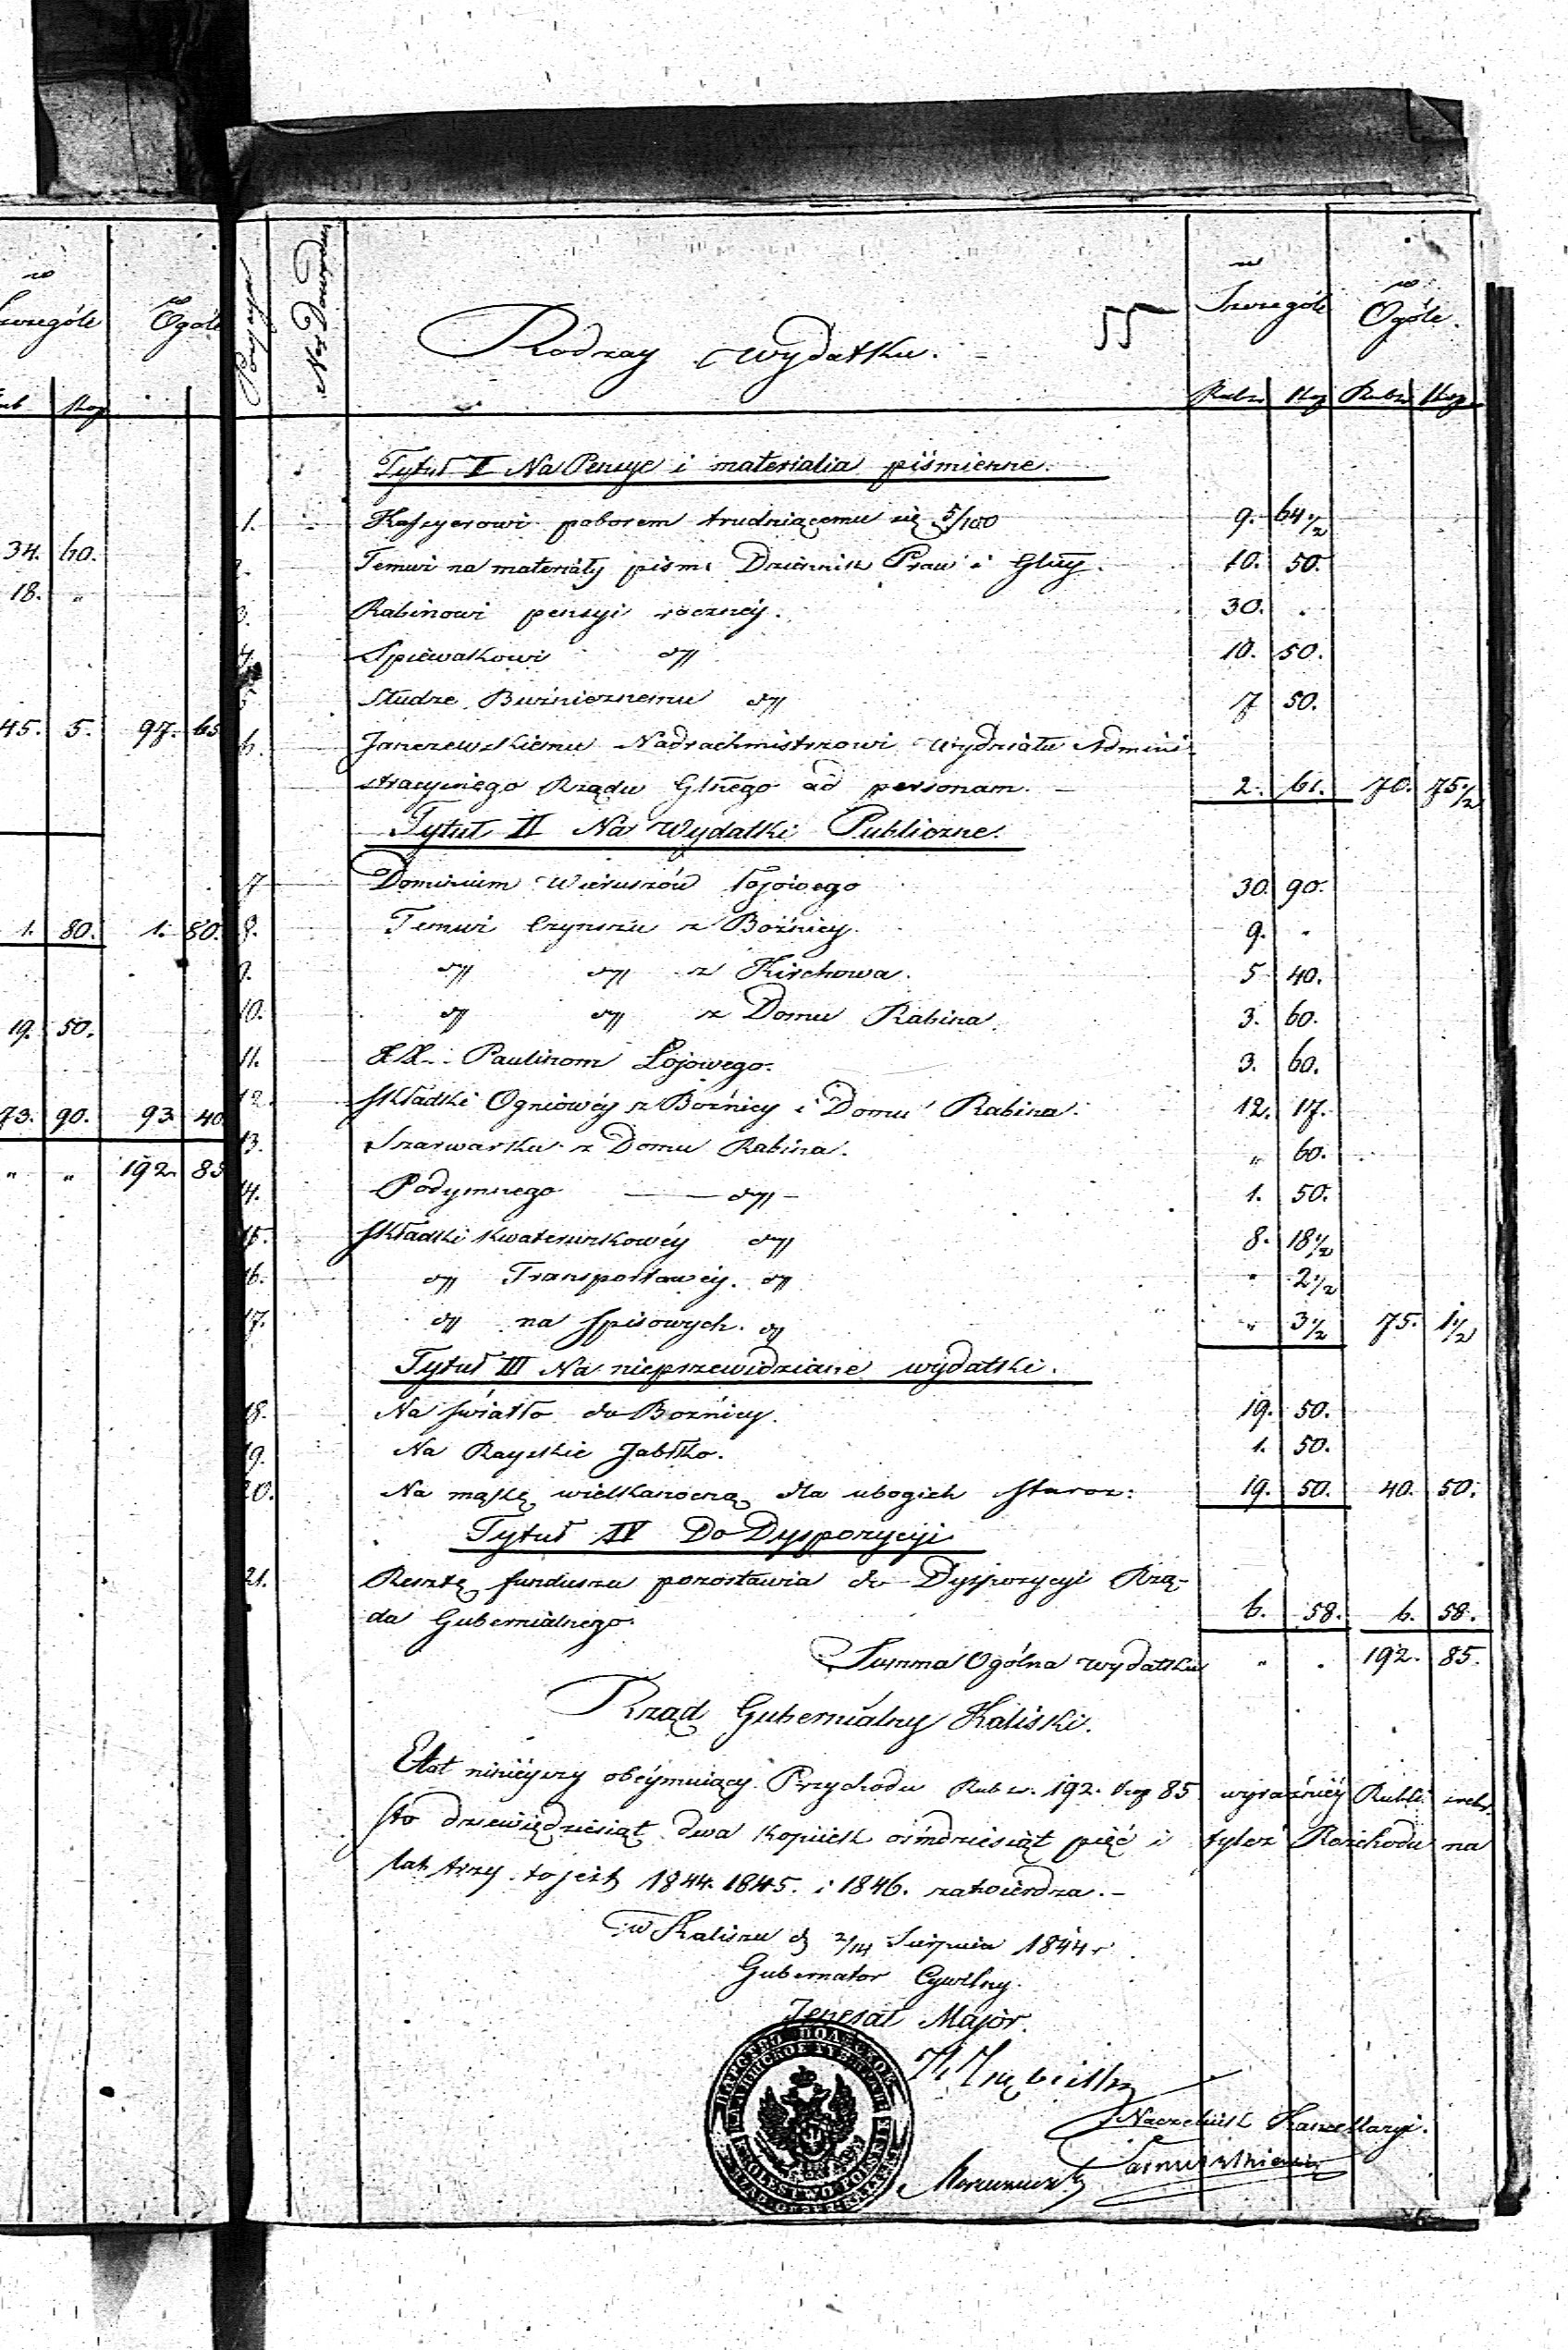 w w
Szczególe Ogóle
Rub Kop
34. 60.
18. "
45. 5. 97. 65
1. 80. 1. 80.
19. 50.
73. 90. 93 40
" " 192. 85
Pozycya
Nro Dowodu
Rodzay wydatku.
55
w Szczególe
w Ogóle.
Rubsr Kop Rubsr Kop
Tytuł I Na Pensye i materialia piśmienne.
1. Kassyerowi poborem trudniącemu się 5/100 9. 64 1/2
2. Temuż na materiały piśm: Dziennik Praw i Gluby. 10. 50.
3. Rabinowi pensyi roczney. 30. "
4. Spiewakowi dtt 10. 50.
5. Słudze Buźnicznemu dtt 7 50.
6. Janczewskiemu Nadrachmistrzowi Wydziału Admini-
stracyinego Rządu Glnego ad personam. 2. 61. 70. 75 1/2
Tytuł II Na Wydatki Publiczne.
7 Dominium Wieruszów Łojowego 30. 90.
8. Temuż Czynszu z Bożnicy. 9. "
9. dtt dtt z Kirchowa. 5 40.
10. dtt dtt z Domu Rabina. 3. 60.
11. XX. Paulinom Łojowego. 3. 60.
12. Składki Ogniowéy z Bożnicy i Domu Rabina. 12. 17.
13. Szarwarku z Domu Rabina. " 60.
14. Podymnego dtt 1. 50.
15. Składki kwaterunkowéy dtt 8. 18 1/2
16. dtt Transportowéy. dtt " 2 1/2
17. dtt na spisowych. dtt " 3 1/2 75. 1 1/2
Tytuł III Na nieprzewidziane wydatki.
18. Na światło do Bożnicy. 19. 50.
19. Na Rayskie Jabłko. 1. 50.
20. Na mąkę wielkanocną dla ubogich staroz: 19. 50. 40. 50.
Tytuł IV Do Dyspozycyi
21. Resztę funduszu pozostawia do Dyspozycyi Rzą-
du Gubernialnego. 6. 58. 6. 58.
Summa Ogólna wydatku " " 192. 85.
Rząd Gubernialny Kaliski.
Etat ninieyszy obéymuiący Przychodu Rub sr. 192. kop 85 wyraźniéy Rubli srebr.
sto dziewięćdziesiąt dwa kopiiek ośmdziesiąt pięć i tyleż Rozchodu na
lat trzy to jest 1844. 1845. i 1846. zatwierdza. -
w Kaliszu d 2/14 Sierpnia 1844 r
Gubernator Cywilny.
Jenerał Major.
Naczelnik Kancellaryi.
ЦАРСТВО ПОЛЬСКОЕ
КАЛИШСКОЕ ГУБЕРН. ПРАВ.
KROLESTWO POLSKIE
RZĄD GUBERNIALNY